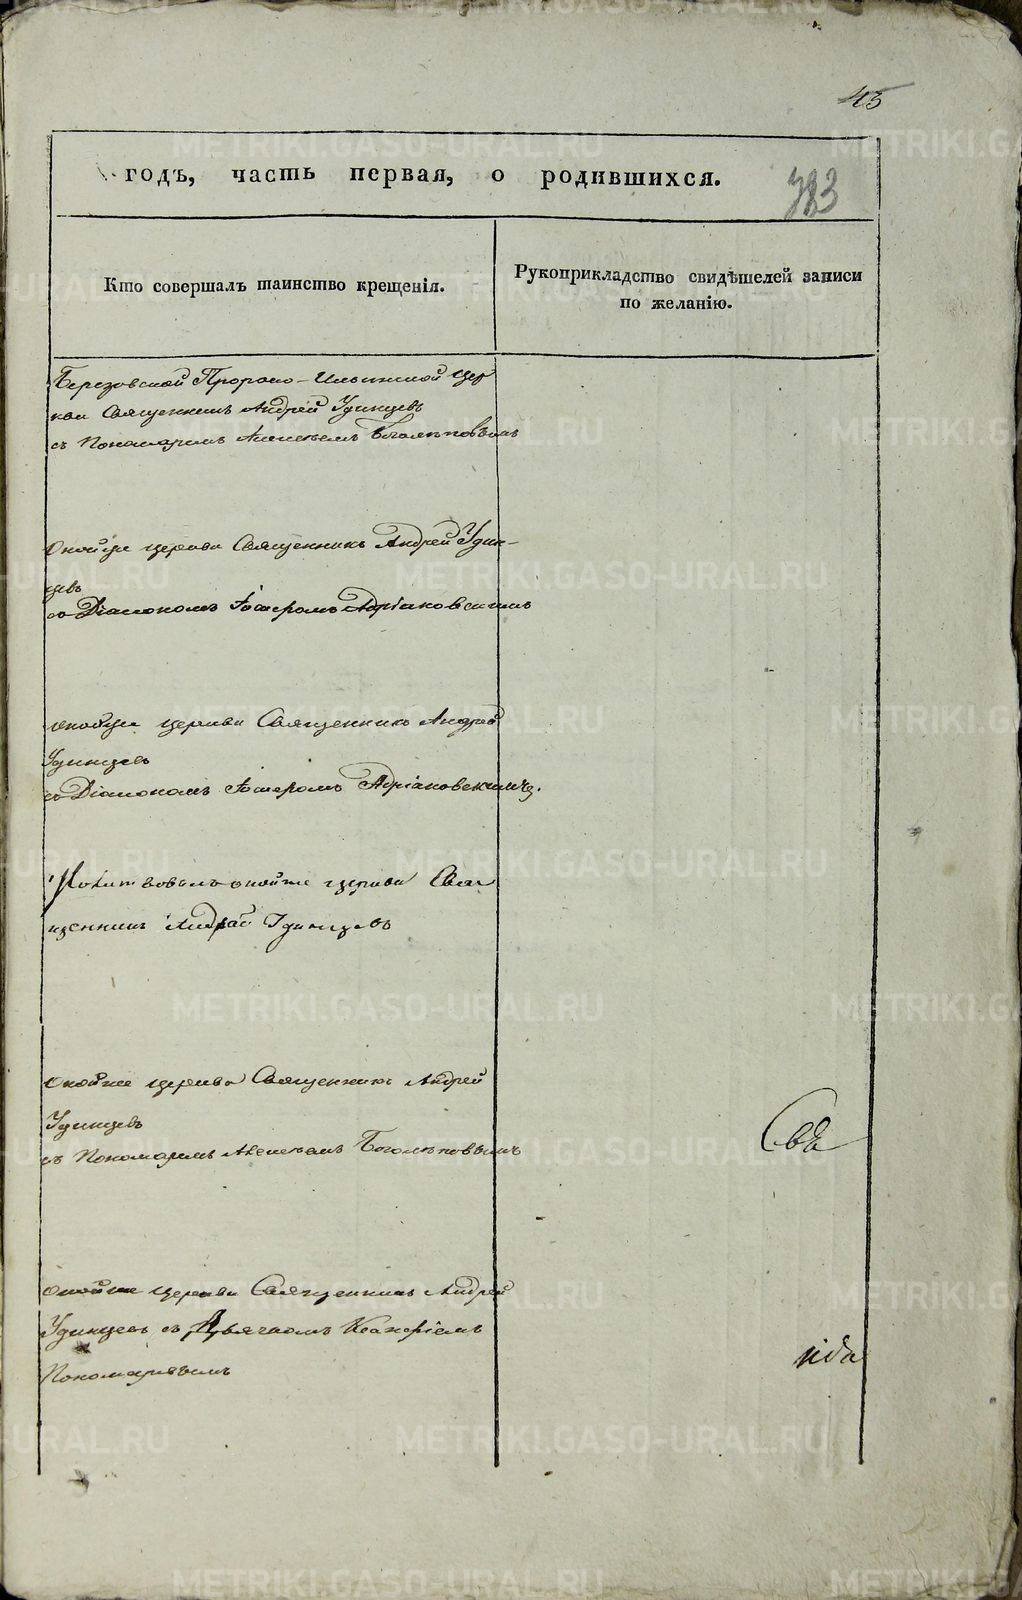 45
годъ, часть первая, о родившихся.
383
Кто совершалъ таинство крещенія.
Рукоприкладство свидѣтелей записи
по желанію.
Березовской Пророко-Ильинской цер
кви Священникъ Андрей Удинцевъ
съ Пономаремъ Алексѣемъ Боголѣповымъ
Оной же церкви Священникъ Андрей Удин-
цевъ
съ Діакономъ Петромъ Адріановскимъ
Оной же церкви Священникъ Андрей
Удинцевъ
съ Діакономъ Петромъ Адріановскимъ.
Молитвовалъ оной же церкви Свя
щенникъ Андрей Удинцевъ
Оной же церкви Священникъ Андрей
Удинцевъ
съ Пономаремъ Алексѣемъ Боголѣповымъ
Свя
Оной же церкви Священникъ Андрей
Удинцевъ съ Дьячкомъ
Пономаревымъ
METRIKI.GASO-URAL.RU